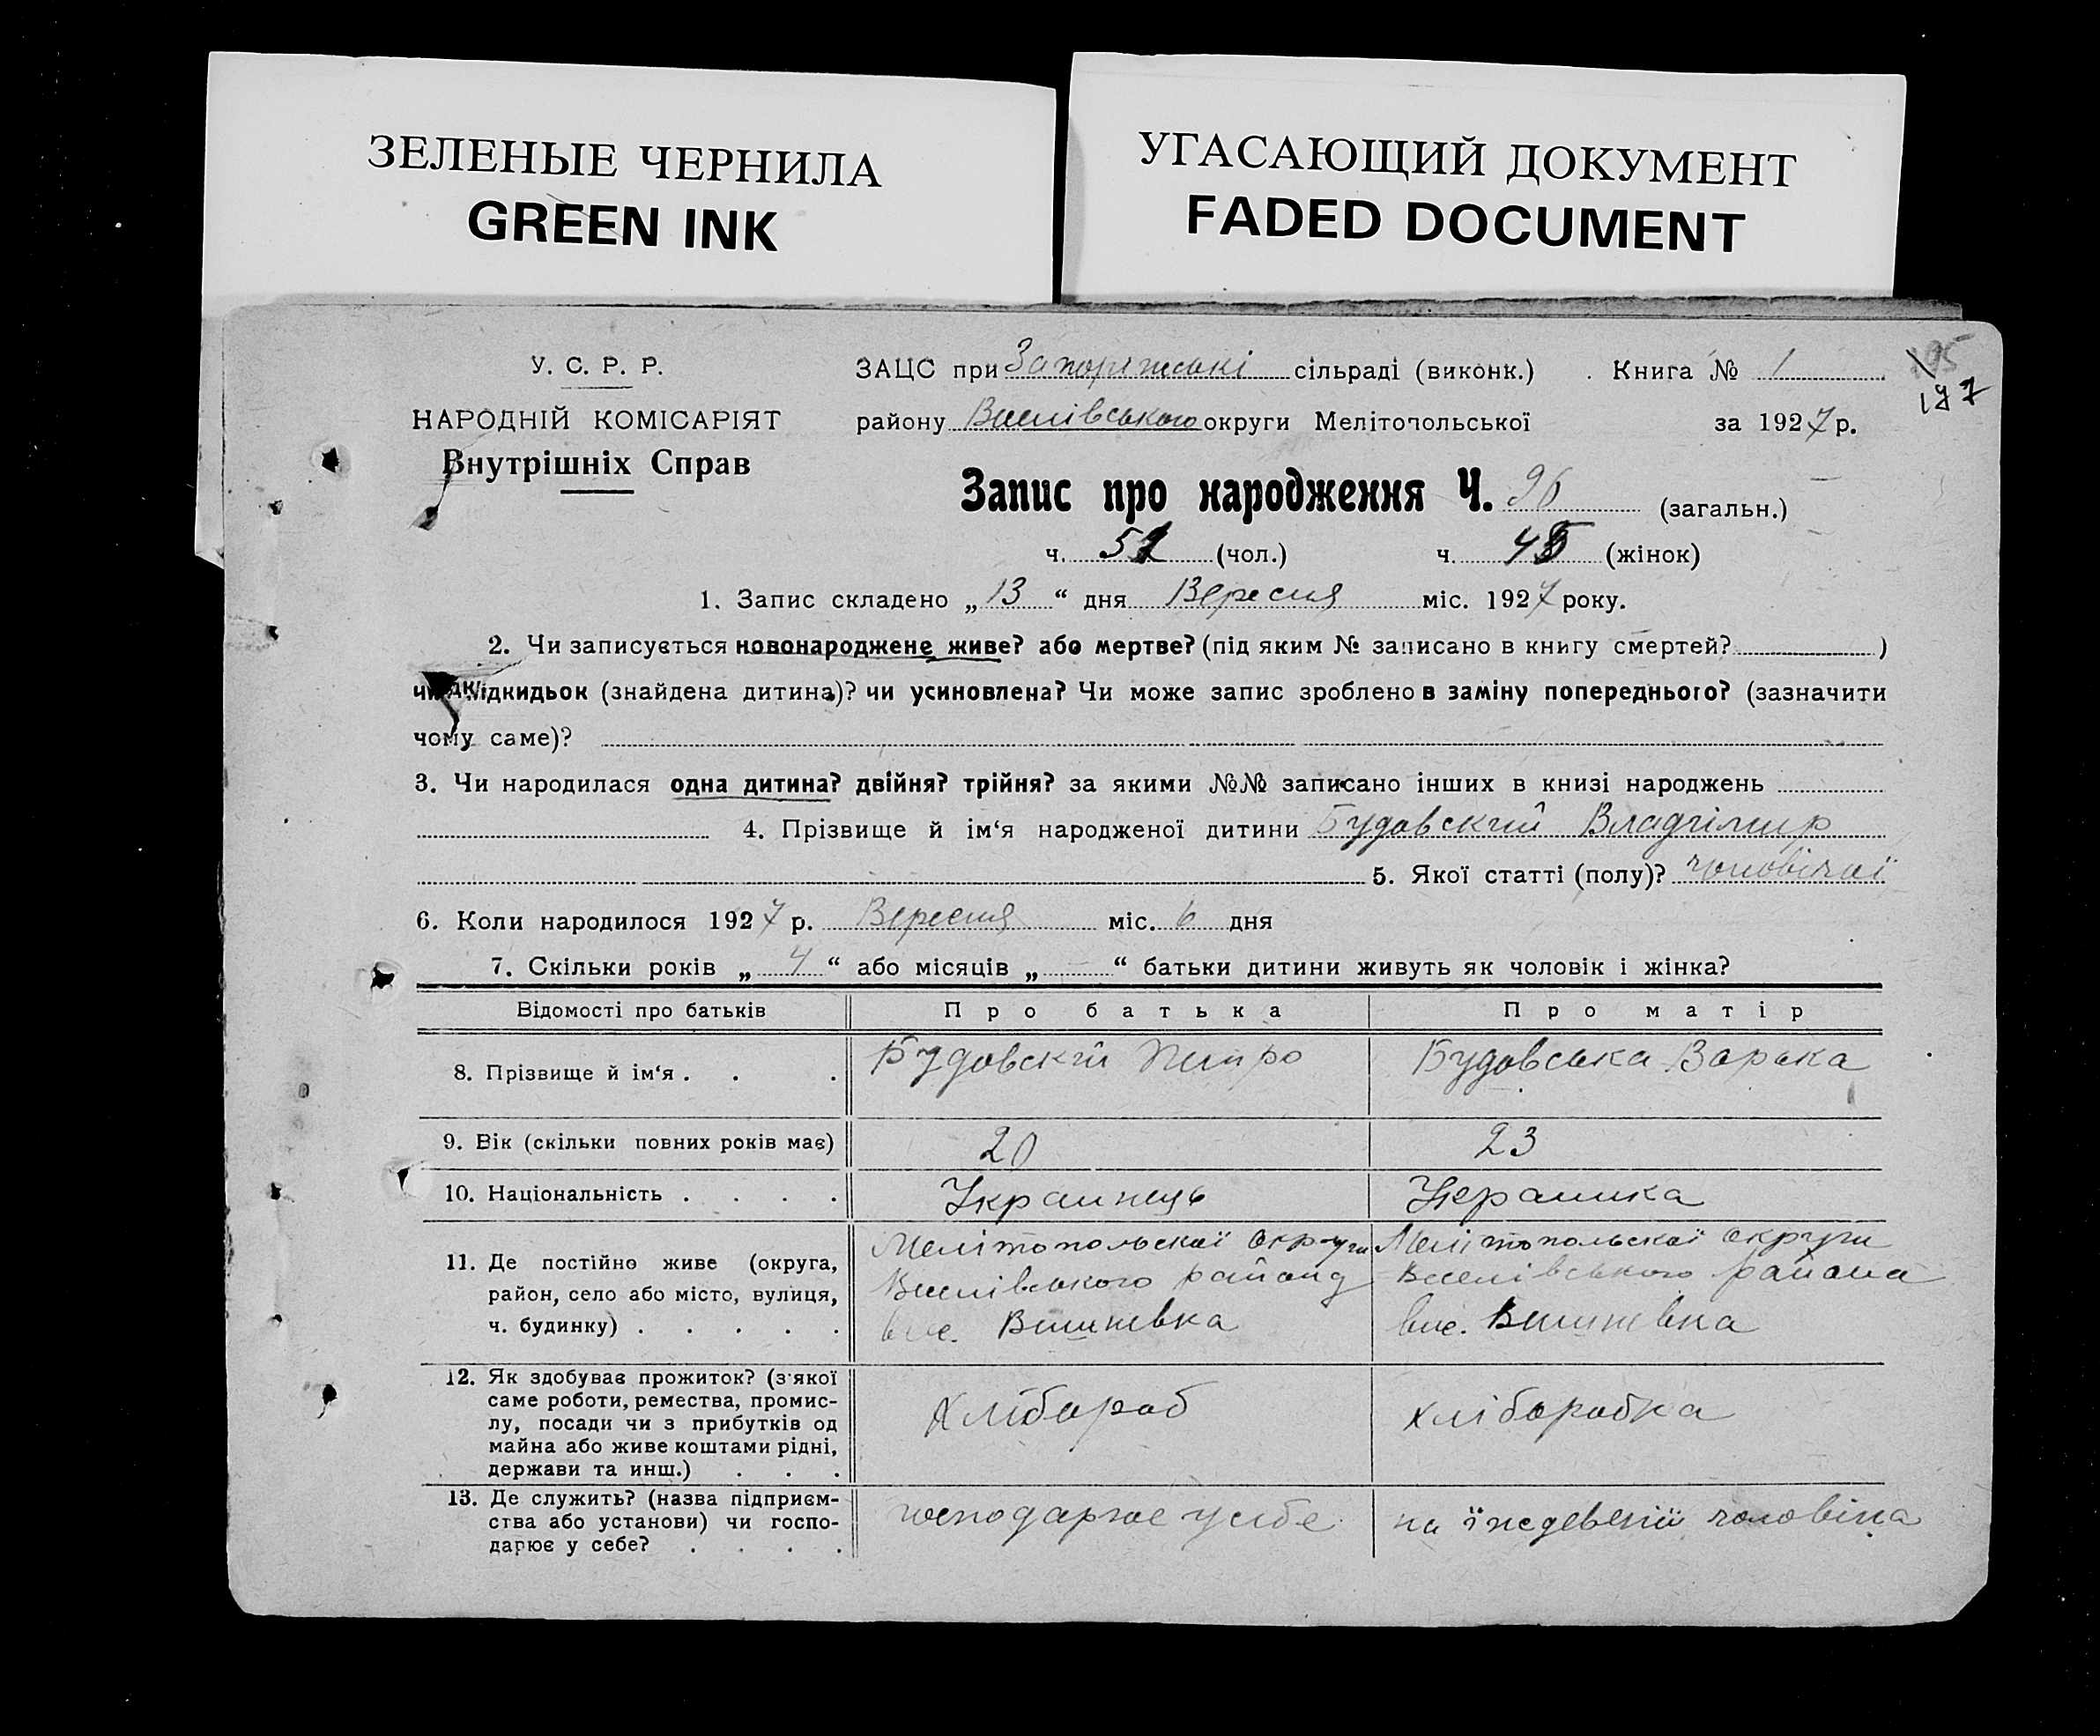 ЗЕЛЕНЫЕ ЧЕРНИЛА
GREEN INK
УГАСАЮЩИЙ ДОКУМЕНТ
FADED DOCUMENT
195
197
У. С. Р. Р.
НАРОДНІЙ КОМІСАРІЯТ
Внутрішніх Справ
ЗАЦС при Запоріжські сільраді (виконк.) Книга № 1
району Веселівського округи Мелітопольської за 1927 р.
Запис про народження Ч. 96 (загальн.)
ч. 51 (чол.) ч. 45 (жінок)
1. Запис складено „ 13 “ дня Вересня міс. 1927 року.
2. Чи записується новонароджене живе? або мертве? (під яким № записано в книгу смертей? )
чи підкидьок (знайдена дитина)? чи усиновлена? Чи може запис зроблено в заміну попереднього? (зазначити
чому саме)?
3. Чи народилася одна дитина? двійня? трійня? за якими №№ записано інших в книзі народжень
4. Прізвище й ім‘я народженої дитини Будовский Владімир
5. Якої статті (полу)? чоловічої
6. Коли народилося 1927 р. Вересня міс. 6 дня
7. Скільки років „ 4 “ або місяців „ — “ батьки дитини живуть як чоловік і жінка?
Відомості про батьків Про батька Про матір
8. Прізвище й ім‘я . . . Будовскій Петро Будовська Варька
9. Вік (скільки повних років має) 20 23
10. Національність . . . . Украинець Украинка
11. Де постійно живе (округа,
район, село або місто, вулиця,
ч. будинку) . . . . .
Мелітопольскої округи
Веселівського району
вис. Вишнівка
Мелітопольскої округи
Веселівського района
вис. Вишнівка
12. Як здобуває прожиток? (з'якої
саме роботи, ремества, промис-
лу, посади чи з прибутків од
майна або живе коштами рідні,
держави та инш.) . . .
Хлібороб
хліборобка
13. Де служить? (назва підприєм-
ства або установи) чи госпо-
дарює у себе? . . . .
господарює у себе
на їждевенії чоловіка